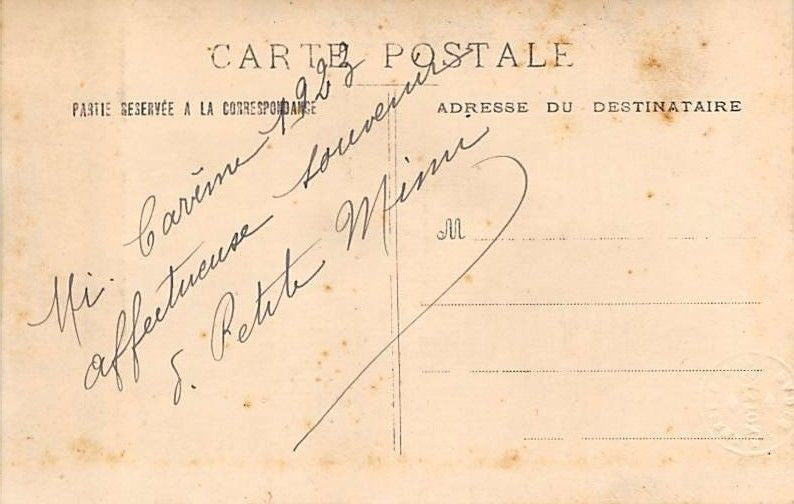 CARTE POSTALE
PARTIE RESERVÉE A LA CORRESPONDANCE
ADRESSE DU DESTINATAIRE
Mi. Carême 1923
affectueuse souvenirs
d. Petite Mimi
M